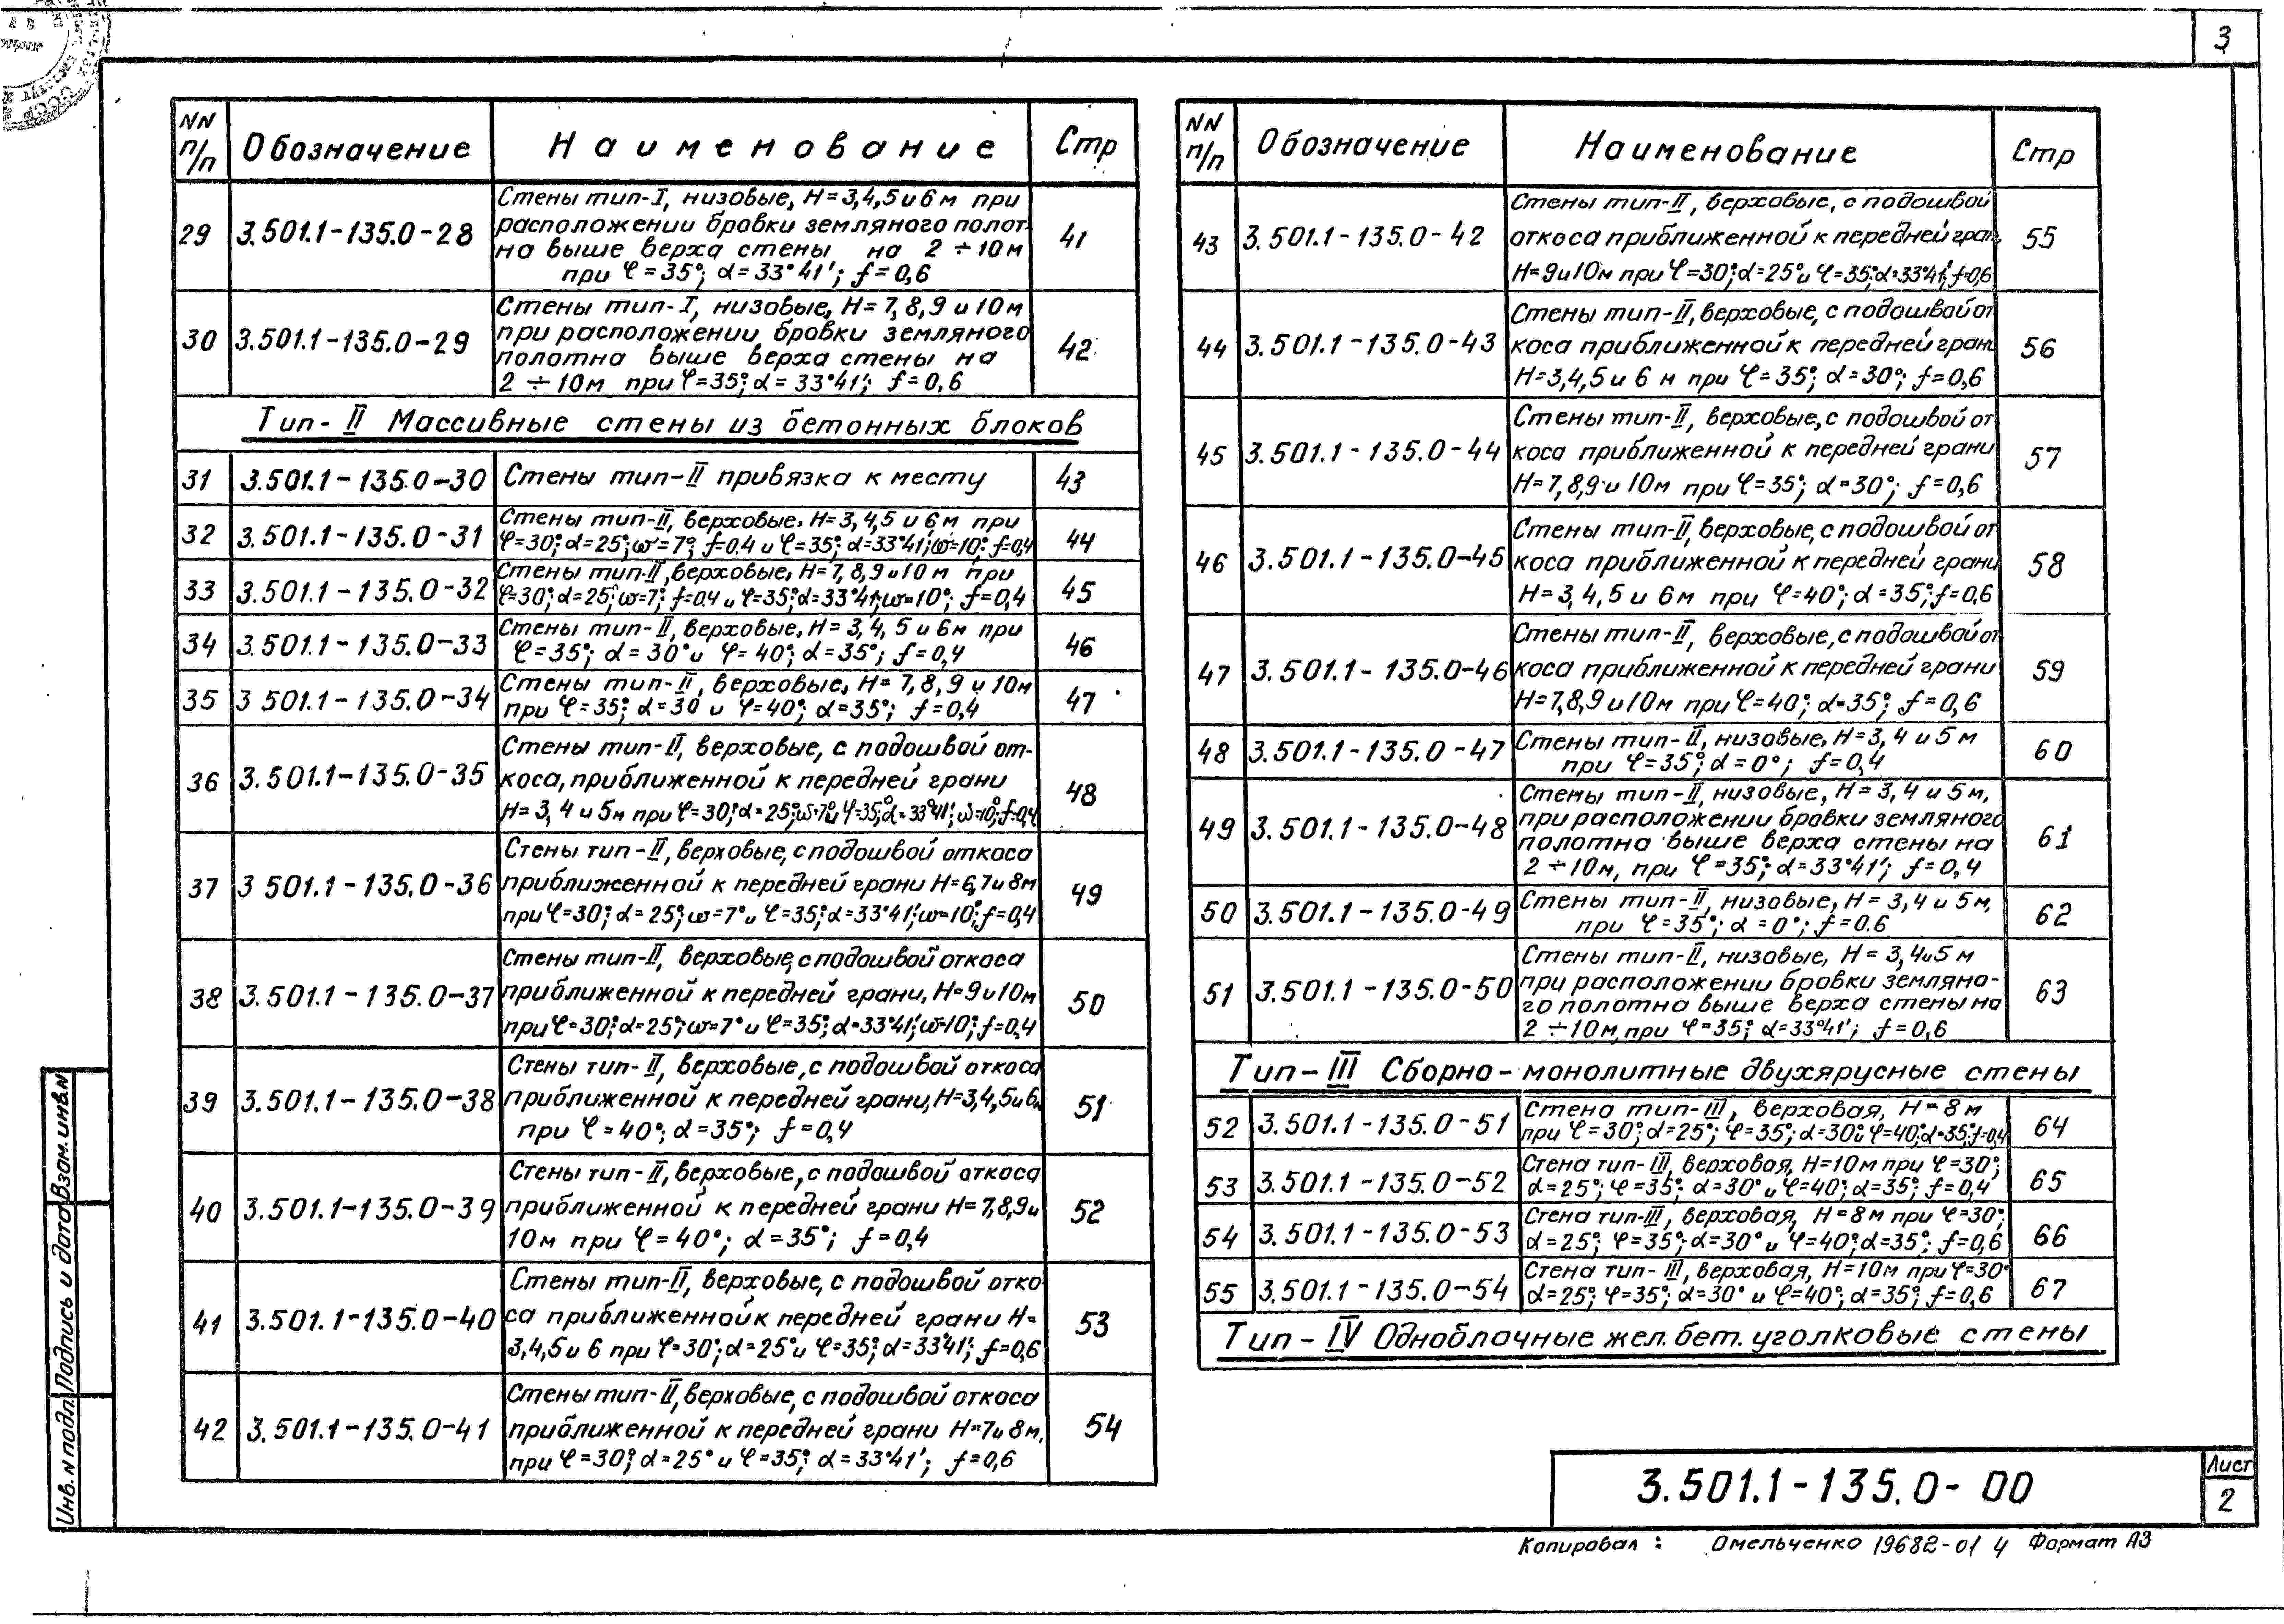 3
NN п/п Обозначение Наименование Стр
29 3.501.1-135.0-28 Стены тип-I, низовые, H=3,4,5 и 6м при
расположении бровки земляного полот-
на выше верха стены на 2÷10м
при φ=35°; α=33°41'; f=0,6
41
30 3.501.1-135.0-29 Стены тип-I, низовые, H=7,8,9 и 10м
при расположении бровки земляного
полотна выше верха стены на
2÷10м при φ=35°; α=33°41'; f=0,6
42
Тип-II Массивные стены из бетонных блоков
31 3.501.1-135.0-30 Стены тип-II привязка к месту 43
32 3.501.1-135.0-31 Стены тип-II, верховые. H=3,4,5 и 6м при
φ=30°; α=25°; ω=7°; f=0.4 и φ=35°; α=33°41'; ω=10°; f=0,4
44
33 3.501.1-135.0-32 Стены тип-II, верховые, H=7,8,9 и 10м при
φ=30°; α=25°; ω=7°; f=0,4 и φ=35°; α=33°41'; ω=10°; f=0,4
45
34 3.501.1-135.0-33 Стены тип-II, верховые, H=3,4,5 и 6м при
φ=35°; α=30° и φ=40°; α=35°; f=0,4
46
35 3 501.1-135.0-34 Стены тип-II, верховые, H=7,8,9 и 10м
при φ=35°; α=30 и φ=40°; α=35°; f=0,4
47
36 3.501.1-135.0-35 Стены тип-II, верховые, с подошвой от-
коса, приближенной к передней грани
H=3,4 и 5м при φ=30°; α=25°; ω=7° и φ=35°; α=33°41'; ω=10°; f=0,4
48
37 3 501.1-135.0-36 Стены тип-II, верховые, с подошвой откоса
приближенной к передней грани H=6,7 и 8м
при φ=30°; α=25°; ω=7° и φ=35°; α=33°41'; ω=10°; f=0,4
49
38 3.501.1-135.0-37 Стены тип-II, верховые, с подошвой откоса
приближенной к передней грани, H=9 и 10м
при φ=30°; α=25°; ω=7° и φ=35°; α=33°41'; ω=10°; f=0,4
50
39 3.501.1-135.0-38 Стены тип-II, верховые, с подошвой откоса
приближенной к передней грани, H=3,4,5 и 6м
при φ=40°; α=35°; f=0,4
51
40 3.501.1-135.0-39 Стены тип-II, верховые, с подошвой откоса
приближенной к передней грани H=7,8,9 и
10м при φ=40°; α=35°; f=0,4
52
41 3.501.1-135.0-40 Стены тип-II, верховые, с подошвой отко
са приближенной к передней грани H=
3,4,5 и 6 при φ=30°; α=25° и φ=35°; α=33°41'; f=0,6
53
42 3.501.1-135.0-41 Стены тип-II, верховые, с подошвой откоса
приближенной к передней грани H=7 и 8м,
при φ=30°; α=25° и φ=35°; α=33°41'; f=0,6
54
NN п/п Обозначение Наименование Стр
43 3.501.1-135.0-42 Стены тип-II, верховые, с подошвой
откоса приближенной к передней гран.
H=9 и 10м при φ=30°; α=25° и φ=35°; α=33°41'; f=0,6
55
44 3.501.1-135.0-43 Стены тип-II, верховые, с подошвой от
коса приближенной к передней гран
H=3,4,5 и 6 м при φ=35°; α=30°; f=0,6
56
45 3.501.1-135.0-44 Стены тип-II, верховые, с подошвой от
коса приближенной к передней грани
H=7,8,9 и 10м при φ=35°; α=30°; f=0,6
57
46 3.501.1-135.0-45 Стены тип-II, верховые, с подошвой от
коса приближенной к передней грани
H=3,4,5 и 6м при φ=40°; α=35°; f=0,6
58
47 3.501.1-135.0-46 Стены тип-II, верховые, с подошвой от
коса приближенной к передней грани
H=7,8,9 и 10м при φ=40°; α=35°; f=0,6
59
48 3.501.1-135.0-47 Стены тип-II, низовые, H=3,4 и 5м
при φ=35°; α=0°; f=0,4
60
49 3.501.1-135.0-48 Стены тип-II, низовые, H=3,4 и 5м,
при расположении бровки земляного
полотна выше верха стены на
2÷10м, при φ=35°; α=33°41'; f=0,4
61
50 3.501.1-135.0-49 Стены тип-II, низовые, H=3,4 и 5м,
при φ=35°; α=0°; f=0.6
62
51 3.501.1-135.0-50 Стены тип-II, низовые, H=3,4 и 5 м
при расположении бровки земляно-
го полотна выше верха стены на
2÷10м, при φ=35°; α=33°41'; f=0,6
63
Тип-III Сборно-монолитные двухярусные стены
52 3.501.1-135.0-51 Стена тип-III, верховая, H=8м
при φ=30°; α=25°; φ=35°; α=30° и φ=40°; α=35°; f=0,4
64
53 3.501.1-135.0-52 Стена тип-III, верховая, H=10м при φ=30°;
α=25°; φ=35°; α=30° и φ=40°; α=35°; f=0,4
65
54 3.501.1-135.0-53 Стена тип-III, верховая, H=8м при φ=30°;
α=25°; φ=35°; α=30° и φ=40°; α=35°; f=0,6
66
55 3.501.1-135.0-54 Стена тип-III, верховая, H=10м при φ=30°
α=25°; φ=35°; α=30° и φ=40°; α=35°; f=0,6
67
Тип-IV Одноблочные жел.бет. уголковые стены
Инв. N подл. Подпись и дата Взам. инв. N
3.501.1-135.0-00
Лист
2
Копировал: Омельченко 19682-01 4 Формат А3